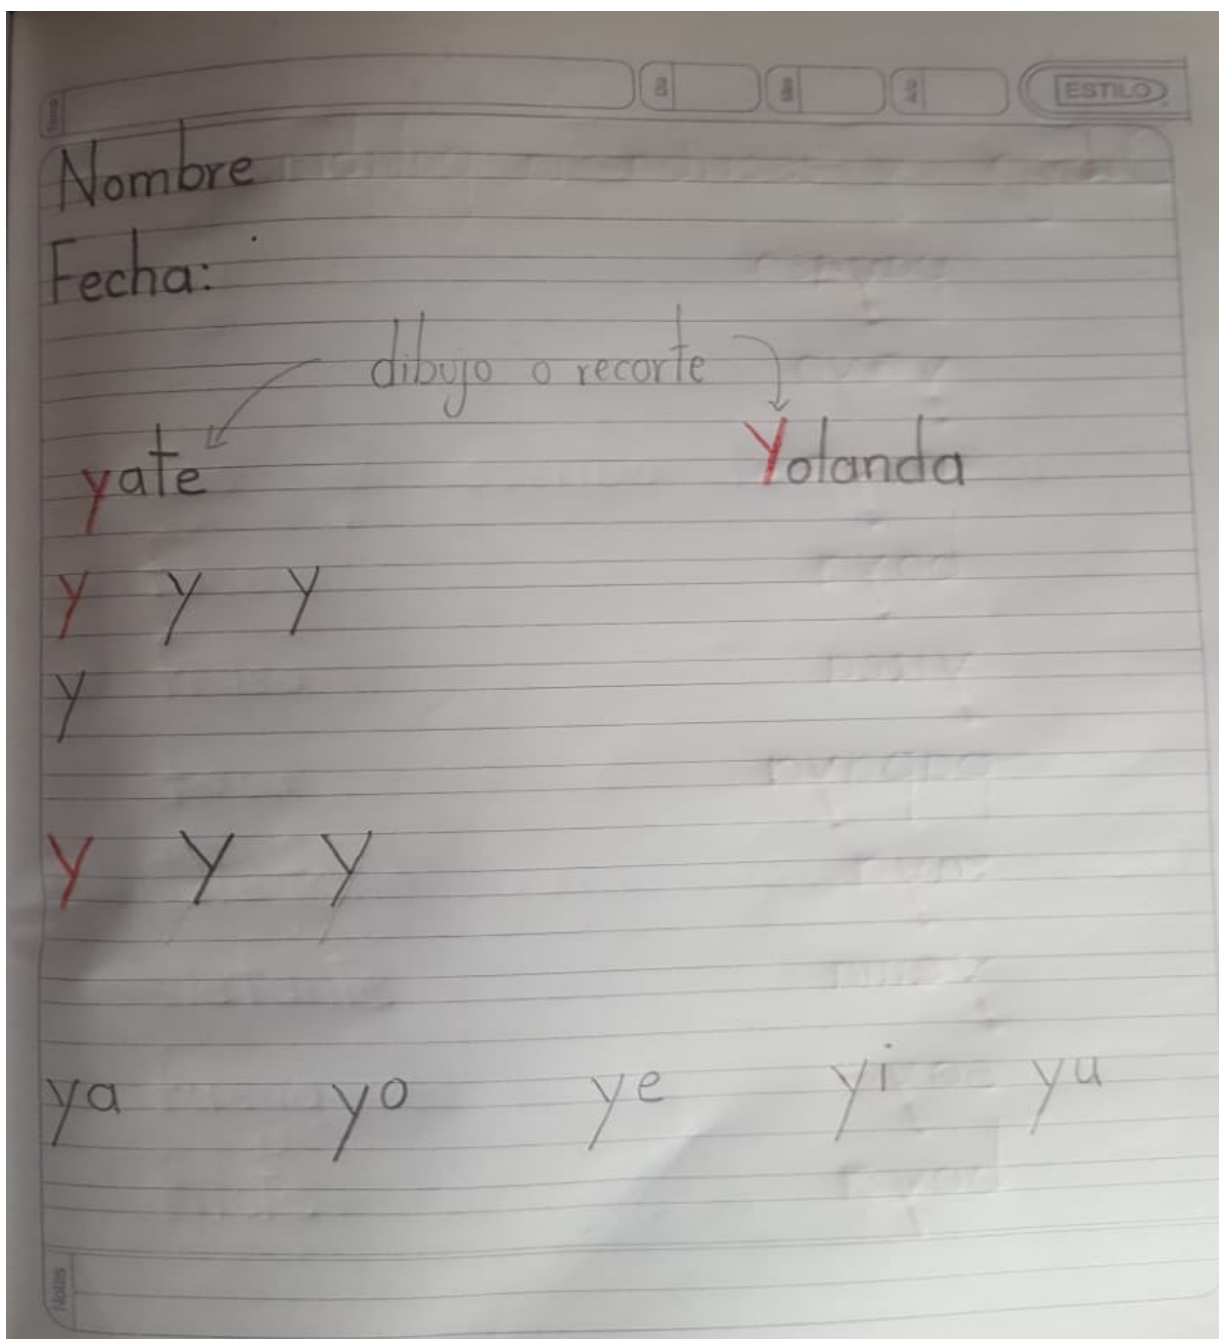 Tema Día Mes Año ESTILO
Nombre
Fecha:
dibujo o recorte
yate Yolanda
y y y
y
Y Y Y
ya yo ye yi yu
Notas